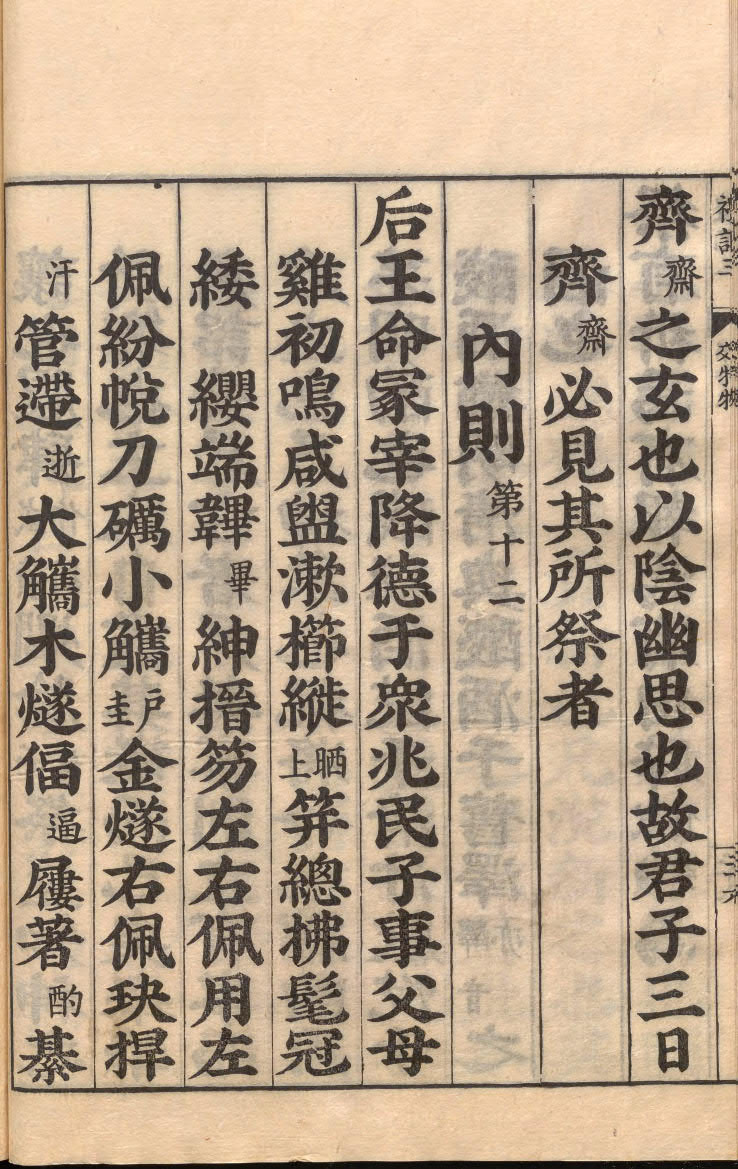 禮記三 郊特牲
齊齋之玄也以陰幽思也故君子三日
齊齋必見其所祭者
內則第十二
后王命冢宰降德于衆兆民子事父母
雞初鳴咸盥漱櫛縰晒上笄總拂髦冠
緌 纓端韠畢紳搢笏左右佩用左
佩紛帨刀礪小觿戶圭金燧右佩玦捍
汗管遰逝大觿木燧偪逼屨著酌綦